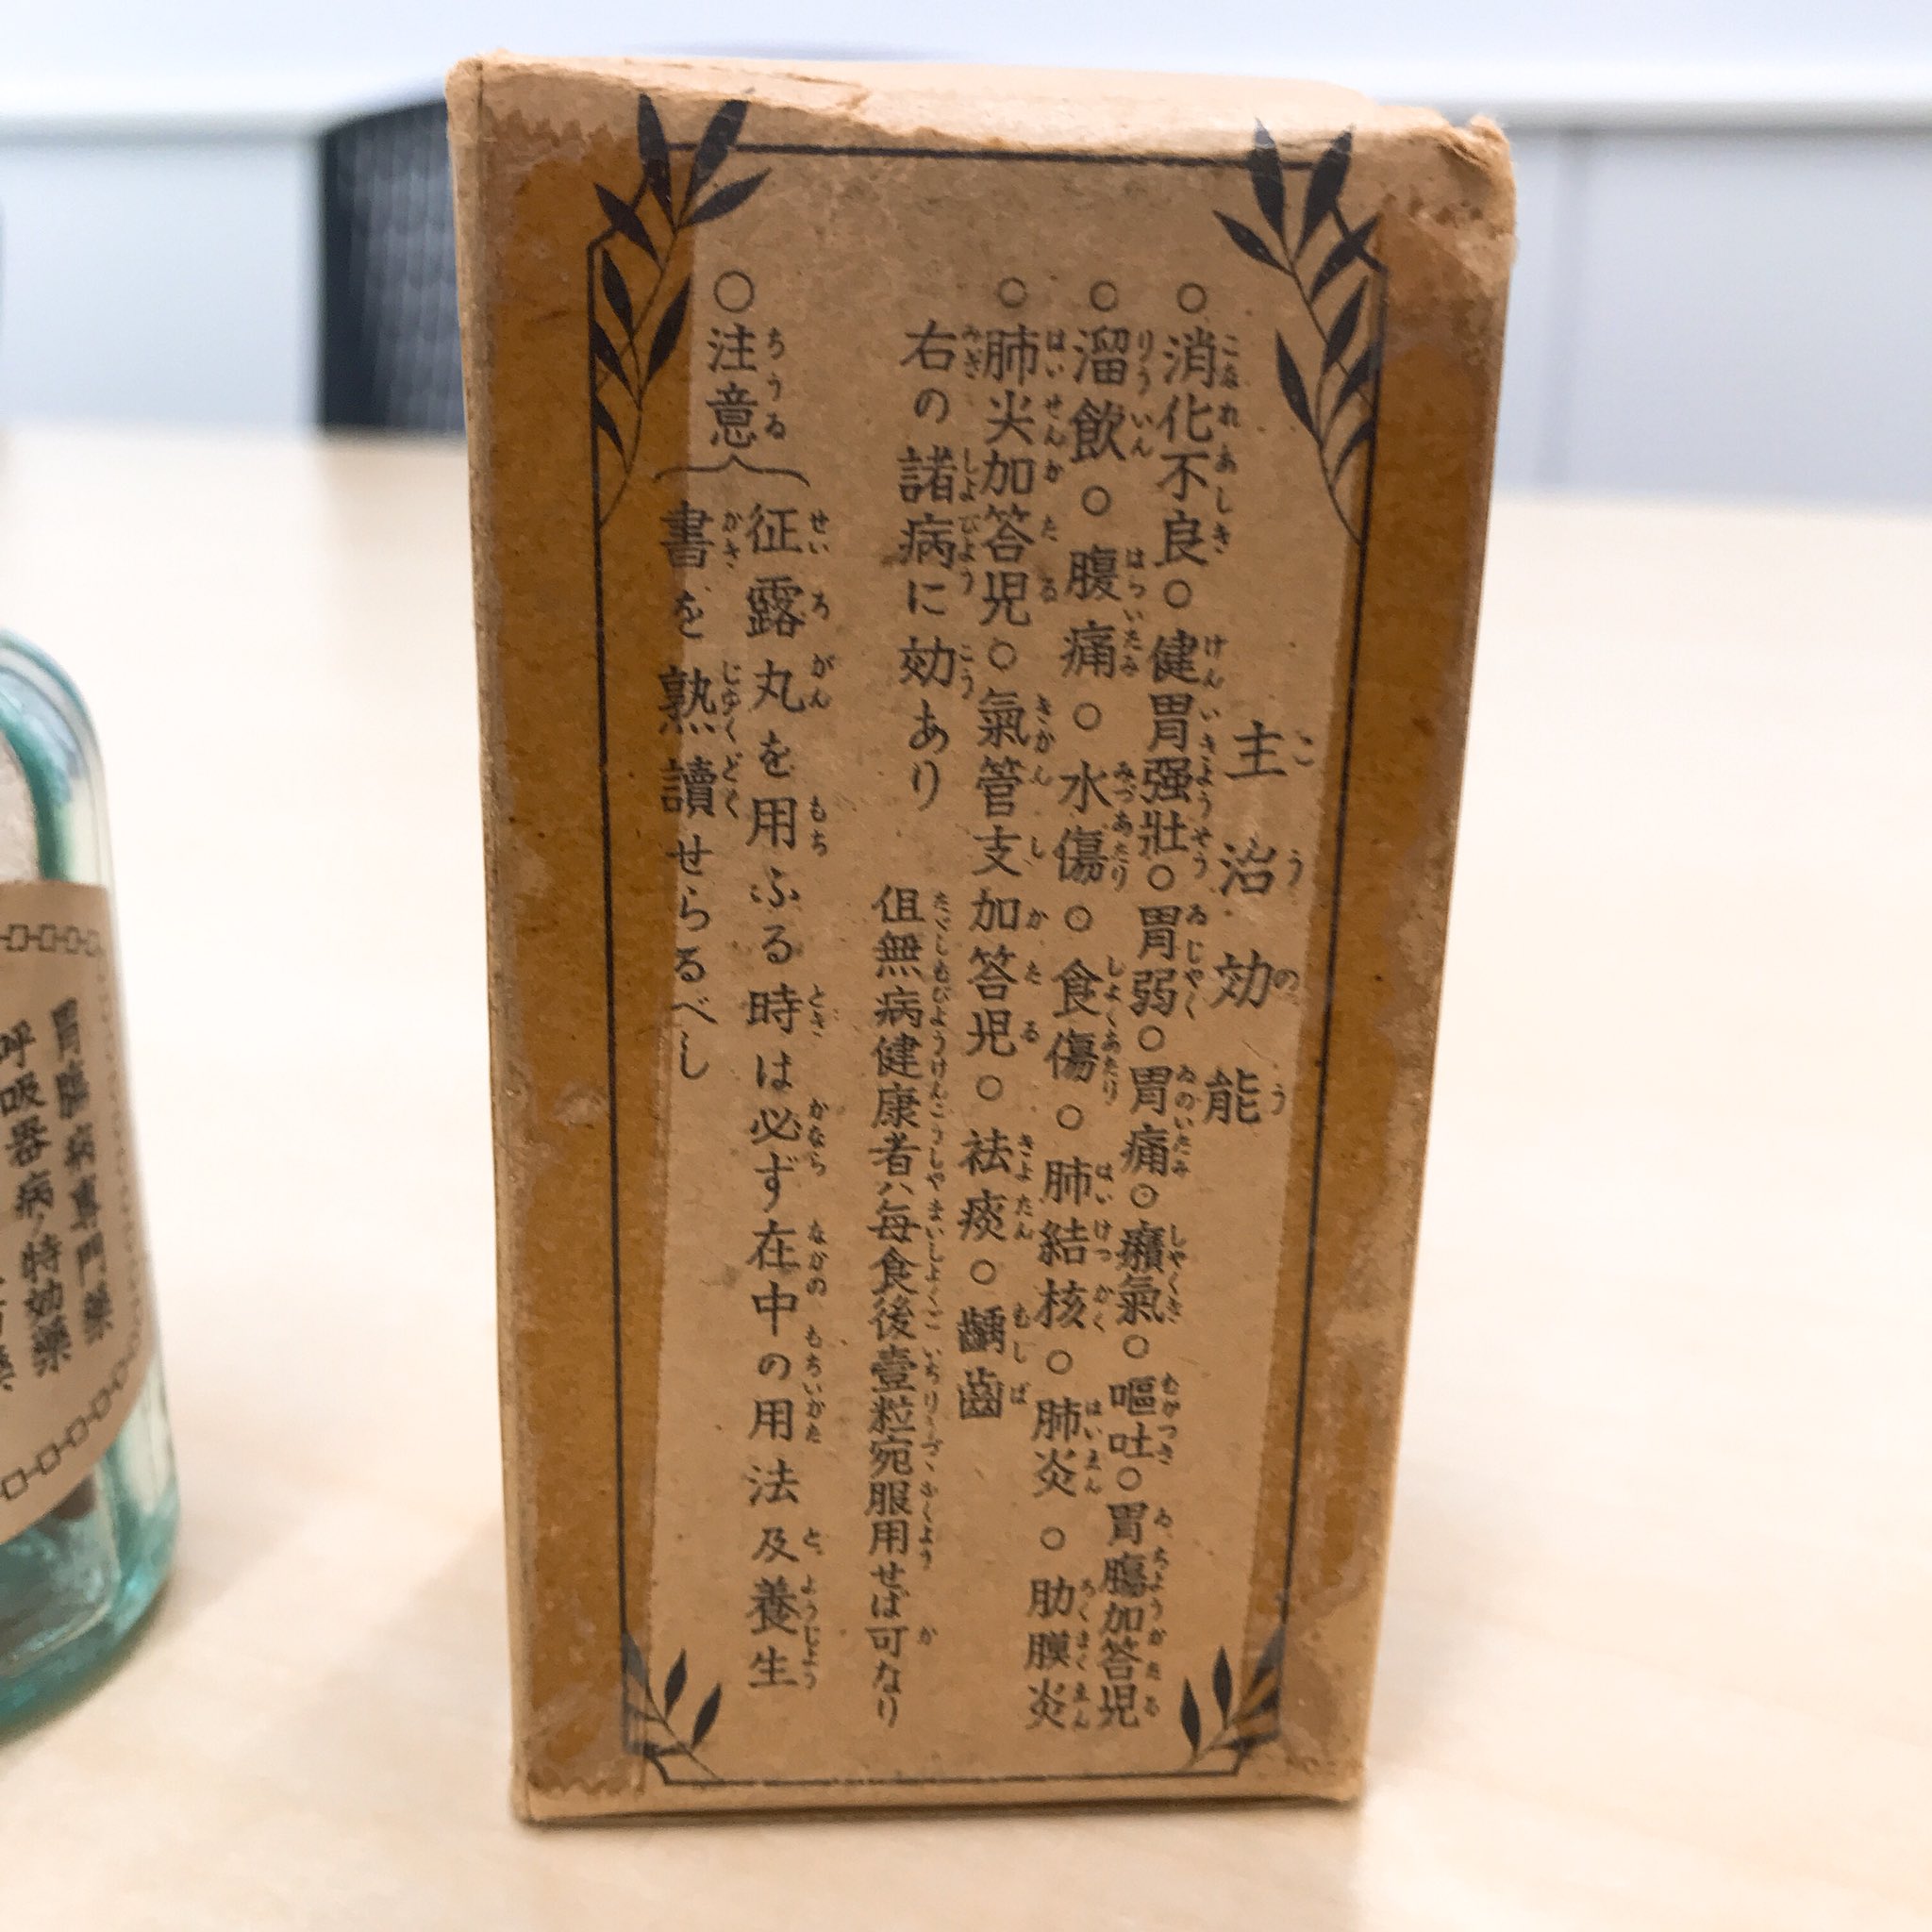 主治効能
○消化不良○健胃强壯○胃弱○胃痛○癪氣○嘔吐○胃腸加答児
○溜飲○腹痛○水傷○食傷○肺結核○肺炎○肋膜炎
○肺尖加答児○氣管支加答児○祛痰○齲齒
右の諸病に効あり
但無病健康者ハ毎食後壹粒宛服用せば可なり
○注意
征露丸を用ふる時は必ず在中の用法及養生
書を熟讀せらるべし
胃腸病専門藥
呼吸器病ノ特効藥